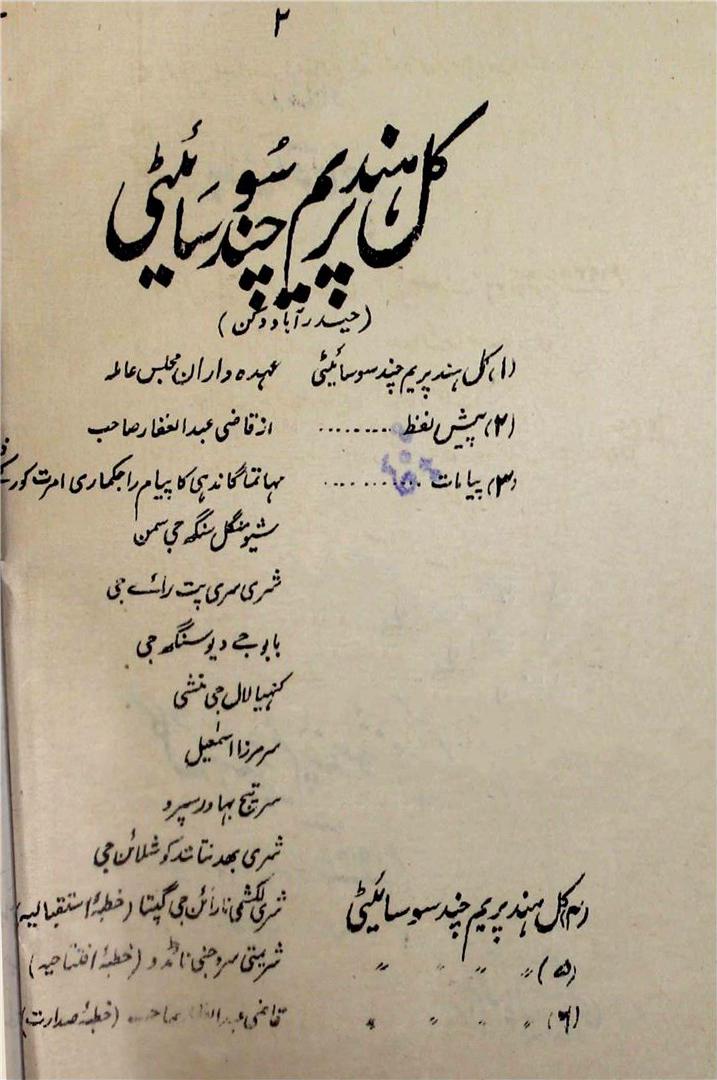 ۲
کل ہند پریم چند سوسائیٹی
(حیدرآباد دکن)
(۱) کل ہند پریم چند سوسائیٹی عہدہ داران مجلس عاملہ
(۲) پیش لفظ ......... از قاضی عبدالغفار صاحب
(۳) پیامات ......... مہاتما گاندہی کا پیام راجکماری امرت کور
شیو منگل سنگھ جی سمن
شری سری پت رائے جی
بابو جے دیو سنگھ جی
کنہیا لال جی منشی
سر مرزا اسمٰعیل
سر تیج بہادر سپرو
شری بھدنتانند کوشلائن جی
(۴) کل ہند پریم چند سوسائیٹی شری لکشمی نارائن جی گپتا (خطبۂ استقبالیہ)
(۵)〃 〃 〃 〃 شریمتی سروجنی نائڈو (خطبۂ افتتاحیہ)
(۶) 〃 〃 〃 قاضی صاحب (خطبۂ صدارت)